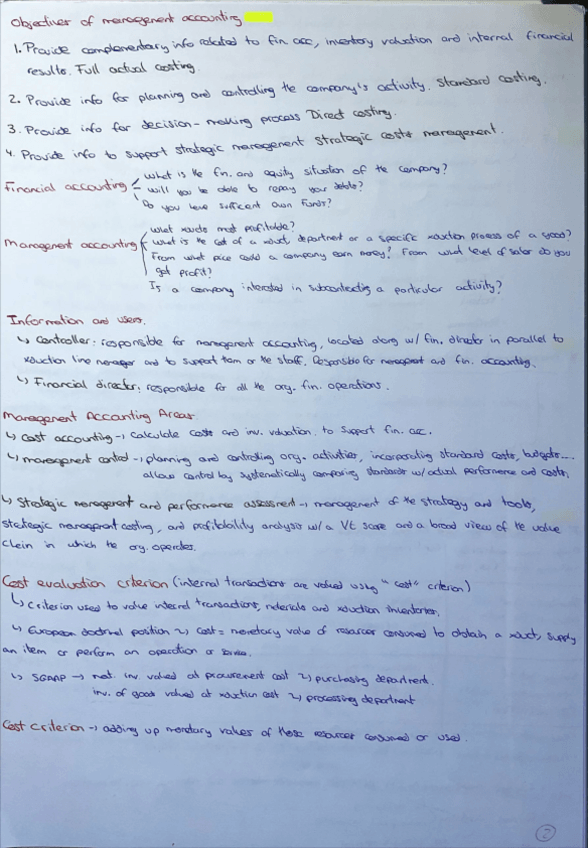 Objectives of management accounting
1. Provide complementary info related to fin. acc, inventory valuation and internal financial
results. Full actual costing.
2. Provide info for planning and controlling the company's activity. Standard costing.
3. Provide info for decision-making process Direct costing.
4. Provide info to support strategic management strategic costs management.
Financial accounting
what is the fin. and equity situation of the company?
will you be able to repay your debts?
Do you have sufficient own funds?
Management accounting
what xducts most profitable?
what is the cost of a xduct, department or a specific xduction process of a good?
From what price could a company earn money? From what level of sales do you
get profit?
Is a company interested in subcontracting a particular activity?
Information and users.
↳ Controller: responsible for management accounting, located along w/ fin. director in parallel to
xduction line manager and to support them or the staff. Responsible for management and fin. accounting.
↳ Financial director: responsible for all the org. fin. operations.
Management Accounting Areas
↳ cost accounting → calculate costs and inv. valuation. to support fin. acc.
↳ management control → planning and controlling org. activities, incorporating standard costs, budgets...
allow control by systematically comparing standards w/ actual performance and costs.
↳ Strategic management and performance assessment → management of the strategy and tools,
strategic management costing, and profitability analysis w/ a scope and a broad view of the value
chain in which the org. operates.
Cost evaluation criterion (internal transactions are valued using "cost" criterion)
↳ Criterion used to value internal transactions, materials and xduction inventories.
↳ European doctrinal position → cost = monetary value of resources consumed to obtain a xduct, supply
an item or perform an operation or service.
↳ SGAAP → mat. inv. valued at procurement cost → purchasing department.
inv. of goods valued at xduction cost → processing department
Cost criterion → adding up monetary values of those resources consumed or used.
2